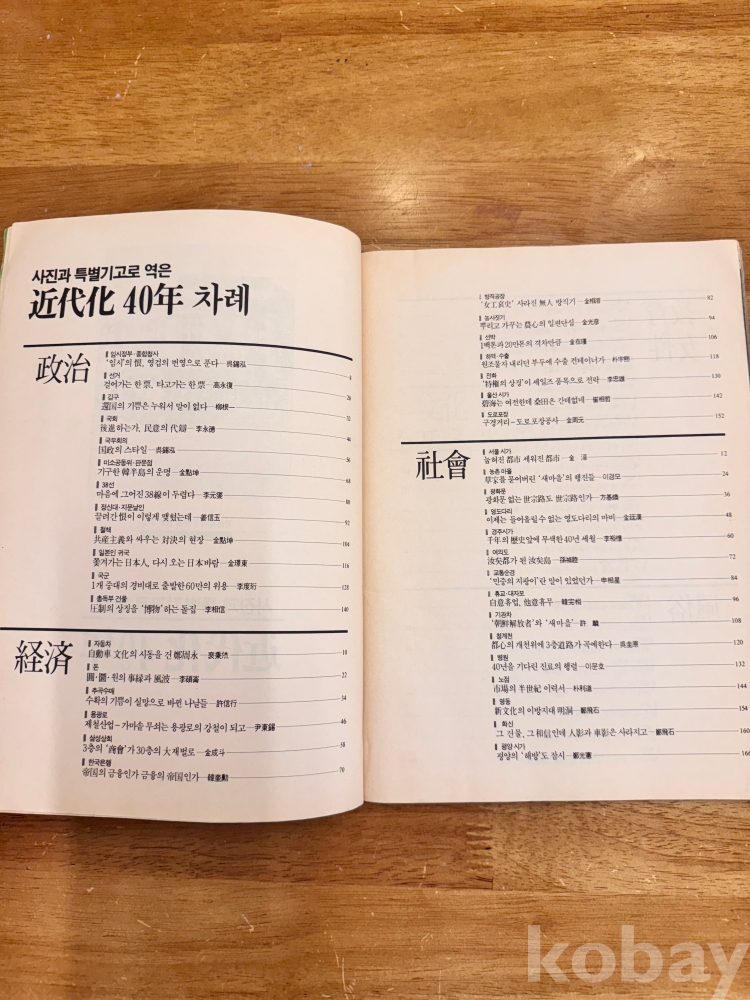 사진과 특별기고로 엮은
近代化 40年 차례
政治
임시정부·종합청사
'임시'의 恨, 영겁의 번영으로 푼다—吳錫泓 8
선거
걸어가는 한 票, 타고가는 한 票—高永復 20
김구
還国의 기쁨은 누워서 말이 없다—柳根一 32
국회
後進하는가, 民意의 代辯—李永德 44
국무회의
国政의 스타일—吳錫泓 56
미소공동위·판문점
기구한 韓半島의 운명—金點坤 68
38선
마음에 그어진 38線이 두렵다—李元燮 80
정신대·지문날인
끌려간 恨이 이렇게 맺혔는데—姜信玉 92
철책
共産主義와 싸우는 対決의 현장—金點坤 104
일본인 귀국
쫓겨가는 日本人, 다시 오는 日本바람—金璟東 116
국군
1개 중대의 경비대로 출발한 60만의 위용—李度珩 128
총독부 건물
圧制의 상징을 '博物'하는 돌집—李相信 140
経済
자동차
自動車 文化의 시동을 건 鄭周永—裵秉杰 10
돈
圓·圜·원의 事緣과 風波—李碩崙 22
추곡수매
수확의 기쁨이 실망으로 바뀐 나날들—許信行 34
용광로
제철산업-가마솥 무쇠는 용광로의 강철이 되고—尹東錫 46
삼성상회
3층의 '商會'가 30층의 大재벌로—金成斗 58
한국은행
帝国의 금융인가 금융의 帝国인가—韓奎勳 70
방직공장
'女工哀史' 사라진 無人 방직기—金相溶 82
농사짓기
뿌리고 가꾸는 農心의 일편단심—金光彦 94
선박
1백톤과 20만톤의 격차만큼—金在瑾 106
하역·수출
원조물자 내리던 부두에 수출 컨테이너가—朴宇熙 118
전화
'特権의 상징'이 세일즈 품목으로 전락—李忠雄 130
울산 시가
碧海는 여전한데 桑田은 간데없네—崔相哲 142
도로포장
구경거리-도로포장공사—金周元 152
社會
서울 시가
눕혀진 都市 세워진 都市—金 12
농촌 마을
草家를 몰아버린 '새마을'의 행진들—이경모 24
광화문
광화문 없는 世宗路도 世宗路인가—方基煥 36
영도다리
이제는 들어올릴수 없는 영도다리의 마비—金廷漢 48
경주시가
千年의 歷史앞에 무색한 40년 세월—李相禧 60
여의도
汝矣都가 된 汝矣島—孫禎睦 72
교통순경
'민중의 지팡이'란 말이 있었던가—申相星 84
휴교·대자보
自意휴업, 他意휴무—韓完相 96
기관차
'朝鮮解放者'와 '새마을'—許 108
청계천
都心의 개천위에 3층道路가 곡예한다—吳圭原 120
병원
40년을 기다린 진료의 행렬—이문호 132
노점
市場의 半世紀 이력서—朴利道 144
명동
新文化의 이방지대 明洞—鄭飛石 154
화신
그 건물, 그 和信인데 人影과 車影은 사라지고—鄭飛石 160
평양 시가
평양의 '해방'도 잠시—鄭光憲 166
kobay